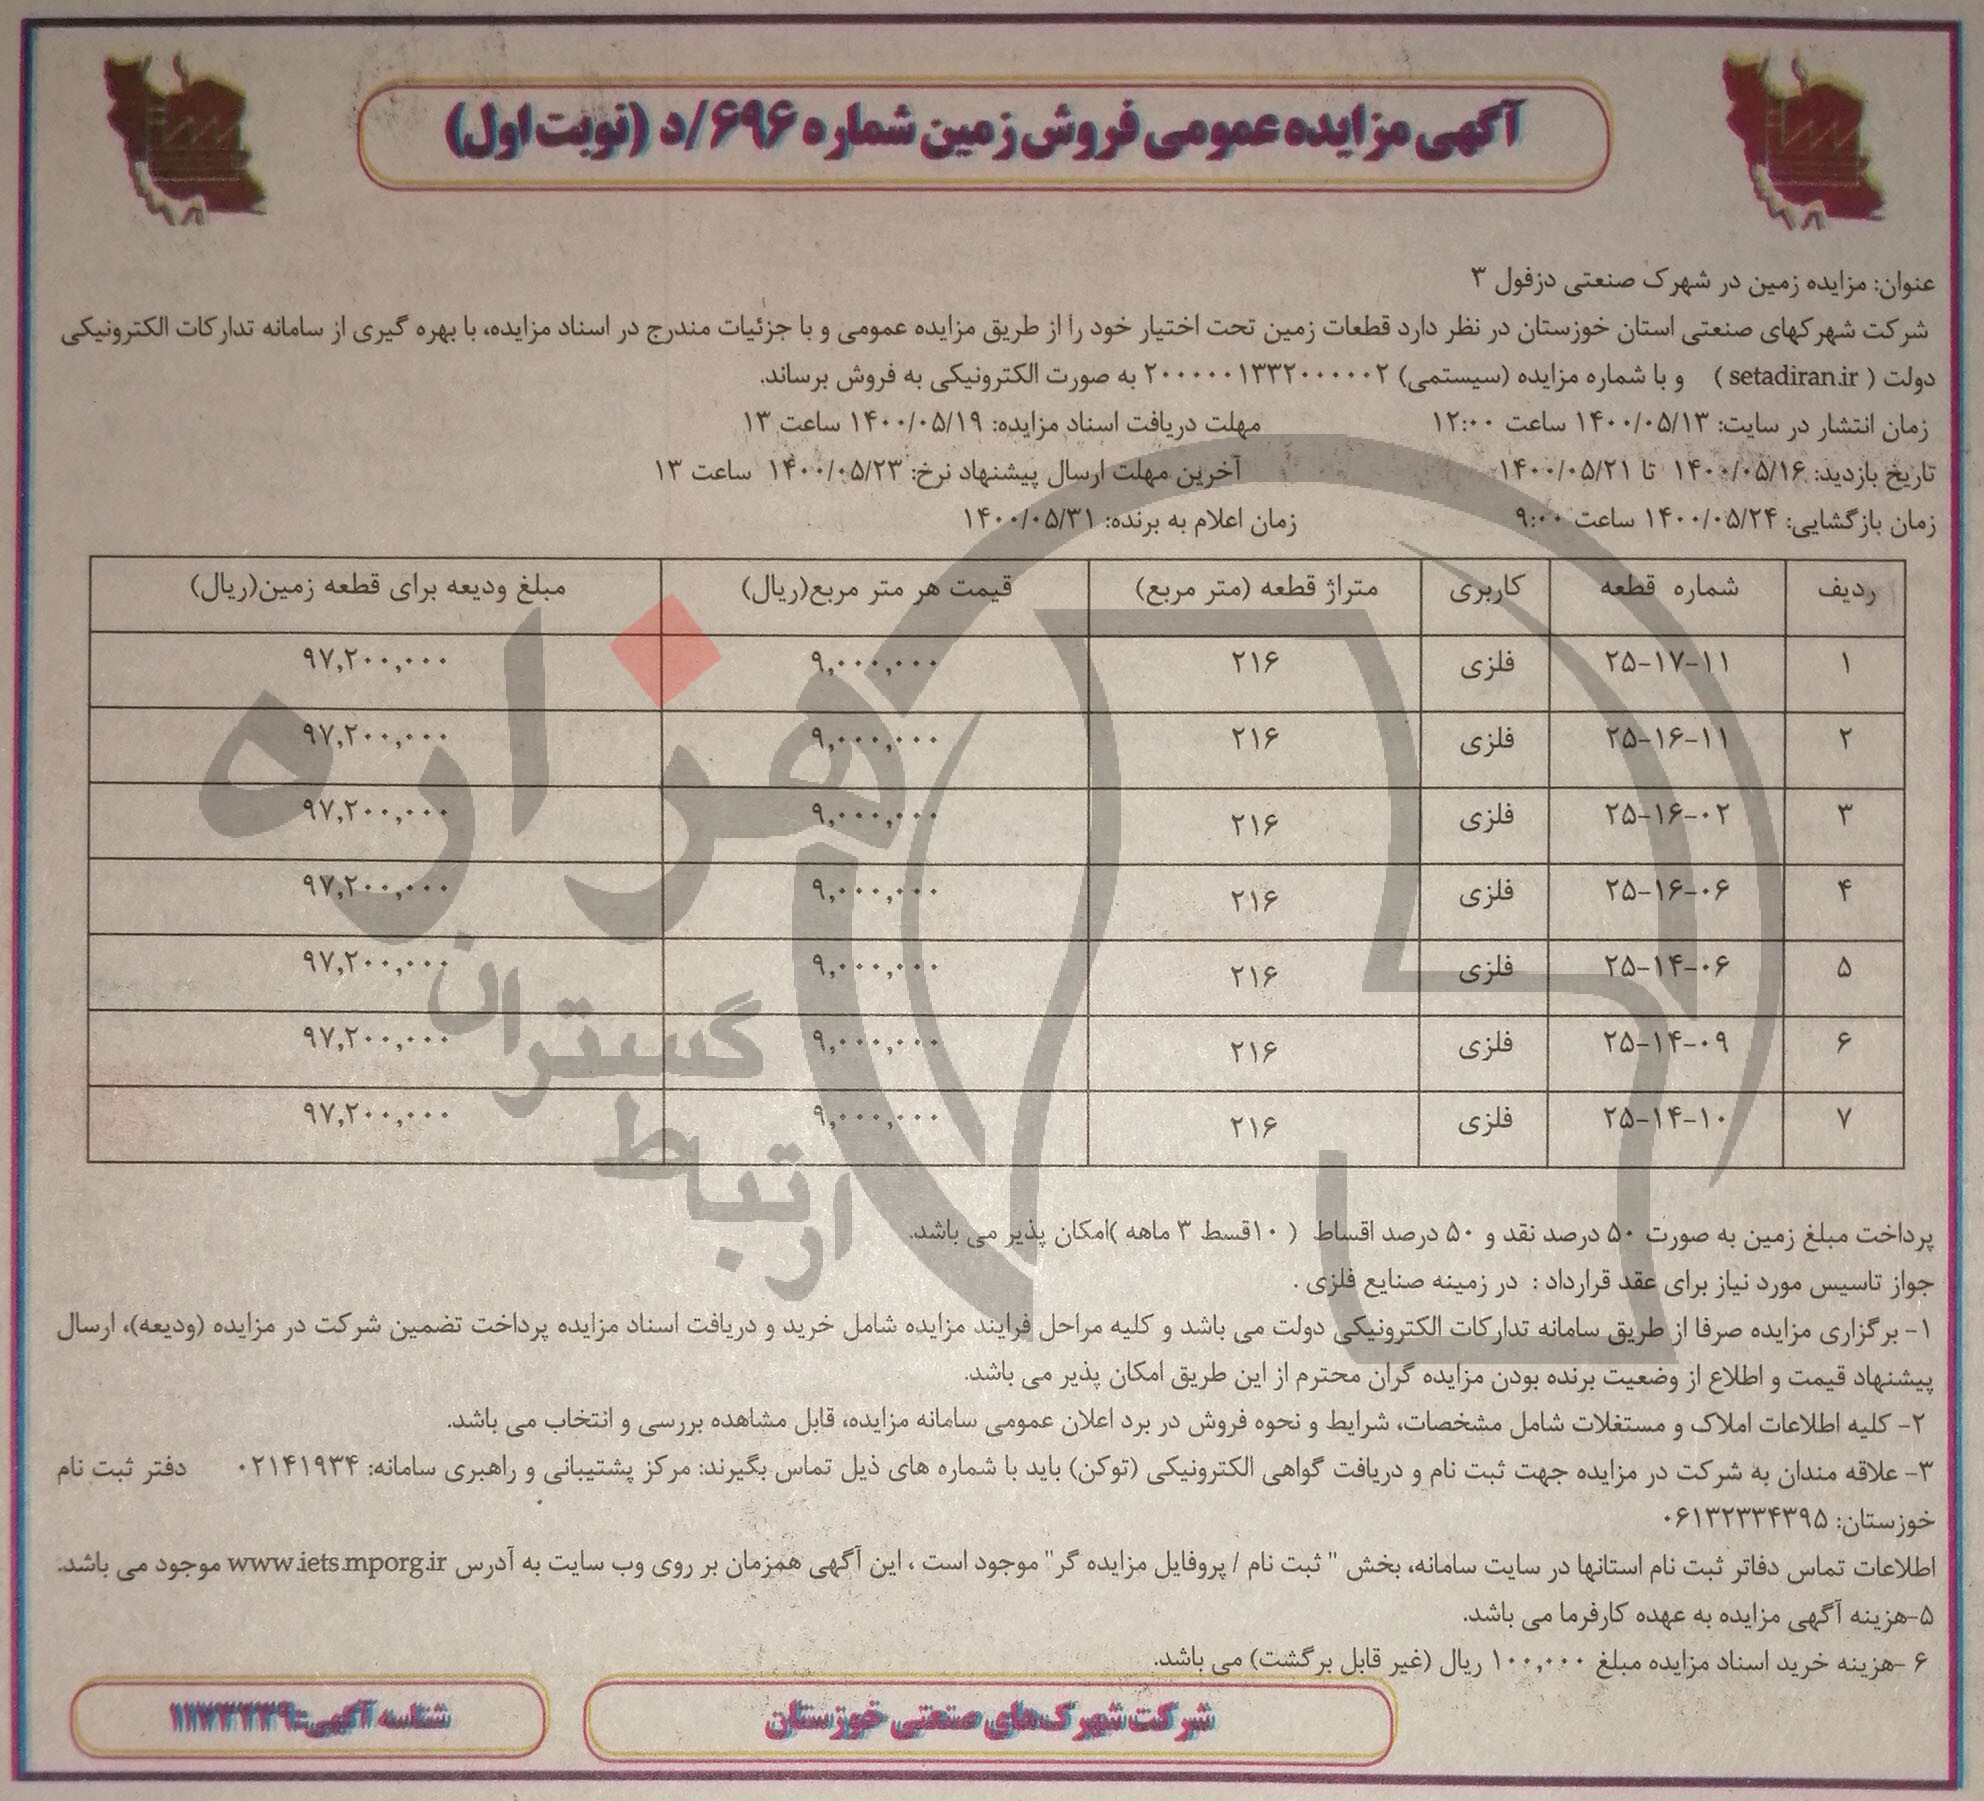 آگهی مزایده عمومی فروش زمین شماره ۶۹۶/د (نوبت اول)
عنوان: مزایده زمین در شهرک صنعتی دزفول ۳
شرکت شهرکهای صنعتی استان خوزستان در نظر دارد قطعات زمین تحت اختیار خود را از طریق مزایده عمومی و با جزئیات مندرج در اسناد مزایده، با بهره گیری از سامانه تدارکات الکترونیکی
دولت ( setadiran.ir ) و با شماره مزایده (سیستمی) ۲۰۰۰۰۰۱۳۳۲۰۰۰۰۰۲ به صورت الکترونیکی به فروش برساند.
زمان انتشار در سایت: ۱۴۰۰/۰۵/۱۳ ساعت ۱۲:۰۰ مهلت دریافت اسناد مزایده: ۱۴۰۰/۰۵/۱۹ ساعت ۱۳
تاریخ بازدید: ۱۴۰۰/۰۵/۱۶ تا ۱۴۰۰/۰۵/۲۱ آخرین مهلت ارسال پیشنهاد نرخ: ۱۴۰۰/۰۵/۲۳ ساعت ۱۳
زمان بازگشایی: ۱۴۰۰/۰۵/۲۴ ساعت ۹:۰۰ زمان اعلام به برنده: ۱۴۰۰/۰۵/۳۱
ردیف شماره قطعه کاربری متراژ قطعه (متر مربع) قیمت هر متر مربع(ریال) مبلغ ودیعه برای قطعه زمین(ریال)
۱ ۲۵-۱۷-۱۱ فلزی ۲۱۶ ۹,۰۰۰,۰۰۰ ۹۷,۲۰۰,۰۰۰
۲ ۲۵-۱۶-۱۱ فلزی ۲۱۶ ۹,۰۰۰,۰۰۰ ۹۷,۲۰۰,۰۰۰
۳ ۲۵-۱۶-۰۲ فلزی ۲۱۶ ۹,۰۰۰,۰۰۰ ۹۷,۲۰۰,۰۰۰
۴ ۲۵-۱۶-۰۶ فلزی ۲۱۶ ۹,۰۰۰,۰۰۰ ۹۷,۲۰۰,۰۰۰
۵ ۲۵-۱۴-۰۶ فلزی ۲۱۶ ۹,۰۰۰,۰۰۰ ۹۷,۲۰۰,۰۰۰
۶ ۲۵-۱۴-۰۹ فلزی ۲۱۶ ۹,۰۰۰,۰۰۰ ۹۷,۲۰۰,۰۰۰
۷ ۲۵-۱۴-۱۰ فلزی ۲۱۶ ۹,۰۰۰,۰۰۰ ۹۷,۲۰۰,۰۰۰
هزاره
ارتباط گستران
پرداخت مبلغ زمین به صورت ۵۰ درصد نقد و ۵۰ درصد اقساط ( ۱۰قسط ۳ ماهه )امکان پذیر می باشد.
جواز تاسیس مورد نیاز برای عقد قرارداد : در زمینه صنایع فلزی .
۱- برگزاری مزایده صرفا از طریق سامانه تدارکات الکترونیکی دولت می باشد و کلیه مراحل فرایند مزایده شامل خرید و دریافت اسناد مزایده پرداخت تضمین شرکت در مزایده (ودیعه)، ارسال
پیشنهاد قیمت و اطلاع از وضعیت برنده بودن مزایده گران محترم از این طریق امکان پذیر می باشد.
۲- کلیه اطلاعات املاک و مستغلات شامل مشخصات، شرایط و نحوه فروش در برد اعلان عمومی سامانه مزایده، قابل مشاهده بررسی و انتخاب می باشد.
۳- علاقه مندان به شرکت در مزایده جهت ثبت نام و دریافت گواهی الکترونیکی (توکن) باید با شماره های ذیل تماس بگیرند: مرکز پشتیبانی و راهبری سامانه: ۰۲۱۴۱۹۳۴ دفتر ثبت نام
خوزستان: ۰۶۱۳۲۳۳۴۳۹۵
اطلاعات تماس دفاتر ثبت نام استانها در سایت سامانه، بخش " ثبت نام / پروفایل مزایده گر" موجود است ، این آگهی همزمان بر روی وب سایت به آدرس www.iets.mporg.ir موجود می باشد.
۵-هزینه آگهی مزایده به عهده کارفرما می باشد.
۶ -هزینه خرید اسناد مزایده مبلغ ۱۰۰,۰۰۰ ریال (غیر قابل برگشت) می باشد.
شرکت شهرک‌های صنعتی خوزستان
شناسه آگهی: